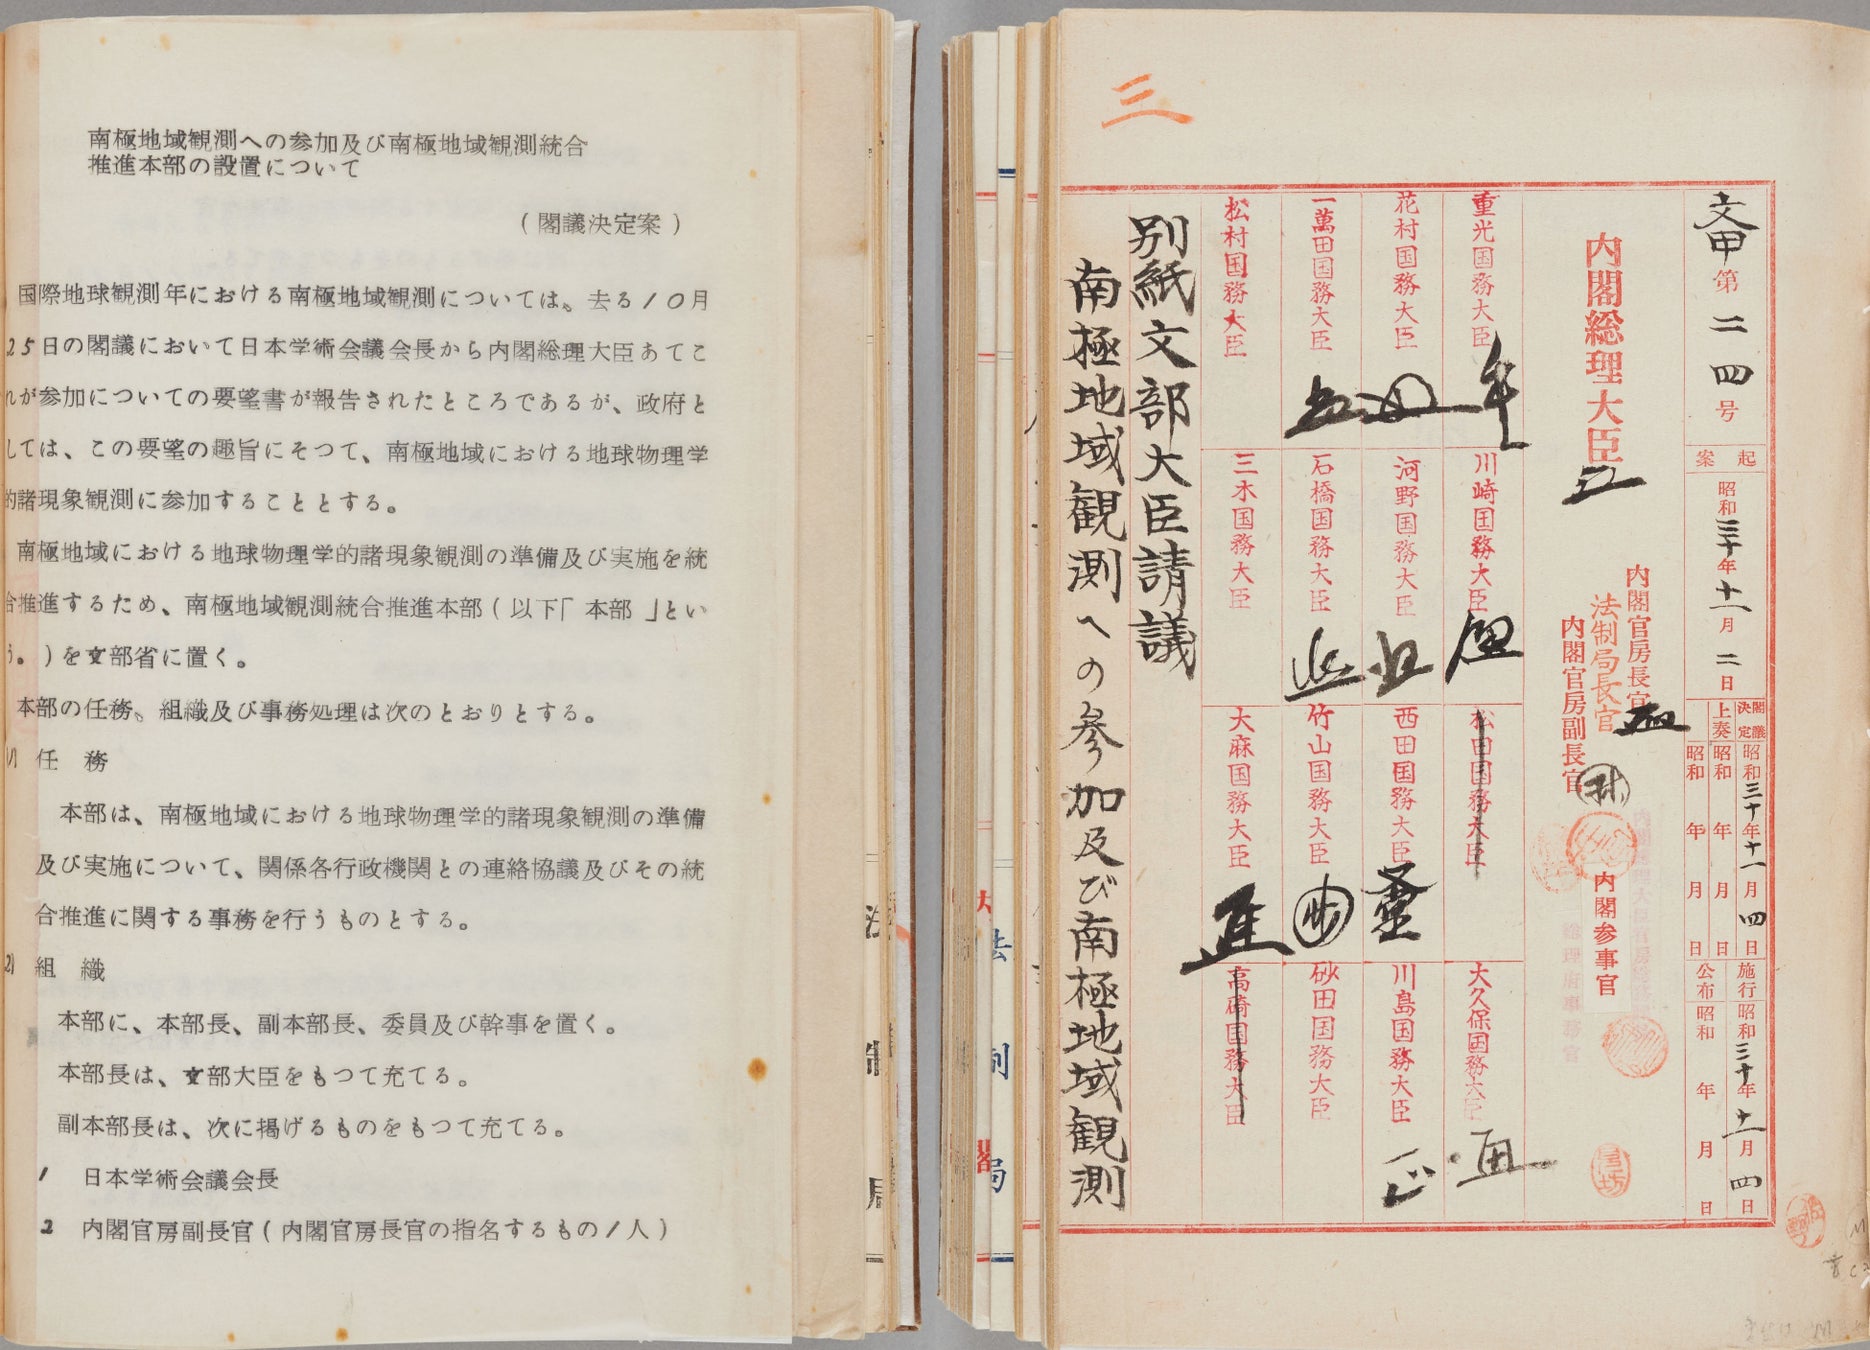 南極地域観測への参加及び南極地域観測統合
推進本部の設置について
(閣議決定案)
国際地球観測年における南極地域観測については、去る10月
25日の閣議において日本学術会議会長から内閣総理大臣あてこ
れが参加についての要望書が報告されたところであるが、政府と
しては、この要望の趣旨にそつて、南極地域における地球物理学
的諸現象観測に参加することとする。
南極地域における地球物理学的諸現象観測の準備及び実施を統
合推進するため、南極地域観測統合推進本部(以下「本部」とい
う。)を文部省に置く。
本部の任務、組織及び事務処理は次のとおりとする。
(1) 任 務
本部は、南極地域における地球物理学的諸現象観測の準備
及び実施について、関係各行政機関との連絡協議及びその統
合推進に関する事務を行うものとする。
2) 組 織
本部に、本部長、副本部長、委員及び幹事を置く。
本部長は、文部大臣をもつて充てる。
副本部長は、次に掲げるものをもつて充てる。
1 日本学術会議会長
2 内閣官房副長官(内閣官房長官の指名するもの1人)
法 制 局
閣
三
文甲第二四号
起案 昭和三十年十一月二日
閣議決定 昭和三十年十一月四日
上奏 昭和 年 月 日
昭和 年 月 日
施行 昭和三十年十一月四日
公布 昭和 年 月 日
内閣総理大臣
内閣官房長官
法制局長官
内閣官房副長官
内閣参事官
重光国務大臣
川崎国務大臣
松田国務大臣
大久保国務大臣
花村国務大臣
河野国務大臣
西田国務大臣
川島国務大臣
一萬田国務大臣
石橋国務大臣
竹山国務大臣
砂田国務大臣
松村国務大臣
三木国務大臣
大麻国務大臣
高碕国務大臣
別紙文部大臣請議
南極地域観測への参加及び南極地域観測